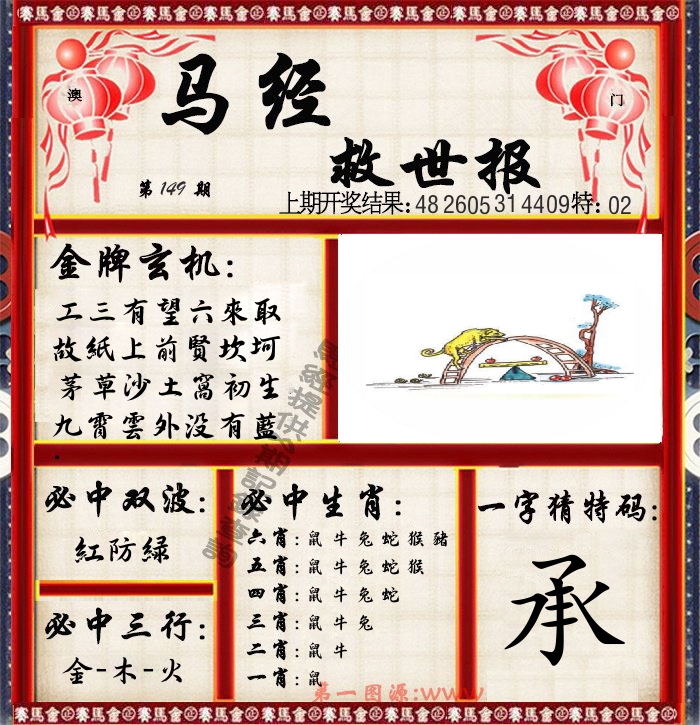 澳
门
马经
救世报
第149期
上期开奖结果:48 26 05 31 44 09特:02
金牌玄机:
工三有望六來取
故紙上前賢坎坷
茅草沙土窩初生
九霄雲外没有藍
必中双波:
紅防綠
必中三行:
金-木-火
必中生肖:
六肖:鼠牛兔蛇猴豬
五肖:鼠牛兔蛇猴
四肖:鼠牛兔蛇
三肖:鼠牛兔
二肖:鼠牛
一肖:鼠
一字猜特码:
承
第一图源:www